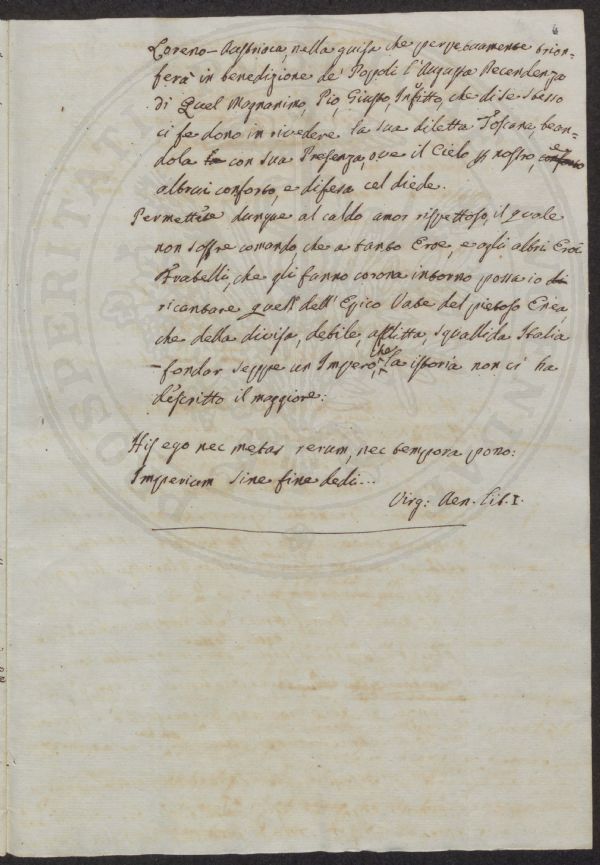 6
Loreno-Austriaca, nella guisa che perpetuamente trion=
ferà in benedizione de' Popoli l'Augusta
di Quel Magnanimo, Pio, Giusto, Invitto, che di se stesso
ci fe dono in rivedere la sua diletta Toscana, bean=
dola con sua Presenza, ove il Cielo p nostro, e
altrui conforto, e difesa cel diede.
Permettete dunque al caldo amor rispettoso, il quale
non soffre comando, che a tanto Eroe, e agli altri Eroi
Fratelli, che gli fanno corona intorno possa io
ricantare quell dell'Epico Vate del pietoso Enea
che della divisa, debile, afflitta, squallida Italia
fondar seppe un Impero, che la istoria non ci ha
descritto il maggiore:
His ego nec metas rerum, nec tempora pono:
Imperium sine fine dedi...
Virg: Aen. Lib. I.
PROSPERITATI